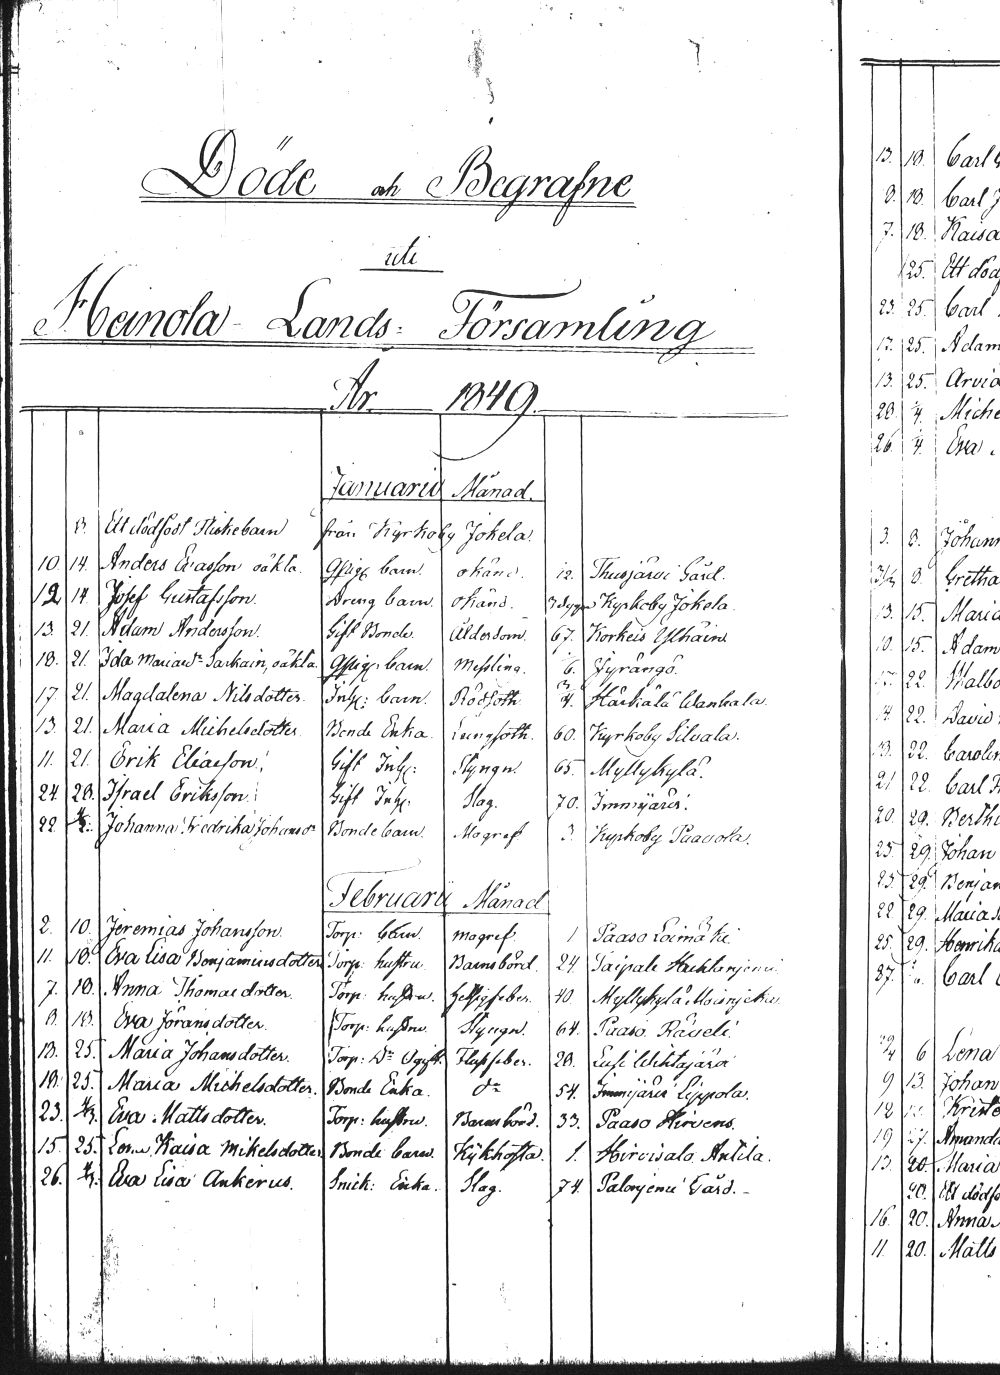 Döde och Begrafne
uti
Heinola Lands: Församling
År 1849.
Januarii Månad.
8. Ett dödfödt Flickebarn från Kyrkoby Jokela
10. 14. Anders Evasson oäkta barn. okänd. 12. Thusjärvi Gård.
12 14. Josef Gustafsson. Dreng barn. okänd. Kyrkoby Jokela.
13. 21. Adam Andersson. Gift Bonde. Ålderdom. 67. Korkeis Ylhäin
18. 21. Ida Mariasdr Sarkain, oäkta barn. Messling. 6. Jyrängö.
17. 21. Magdalena Nilsdotter. Inh: barn. Rödsoth. Härkälä Wanhala.
13. 21. Maria Michelsdotter. Bonde Enka. Lungsoth. 60. Kyrkoby Silvala.
11. 21. Erik Eliasson. Gift Inh: Styngn. 65. Myllykylä.
24. 28. Israel Eriksson. Gift Inh: Slag. 70. Immijärvi.
22. Johanna Fredrika Johansdr Bonde barn. Magref 3. Kyrkoby Paavola.
Februarii Månad
2. 10. Jeremias Johansson. Torp: barn. magref. 1. Paaso Loimaki
11. 18. Eva Lisa Benjaminsdotter Torp: hustru Barnsbörd. 24. Taipale
7. 18. Anna Thomasdotter. Torp: hustru. 40. Myllykylä
8. 18. Eva Jöransdotter. Torp: hustru. Styngn. 64. Paaso Räveli.
18. 25. Maria Johansdotter. Torp: Dr Ogift. 28. Lusi
18. 25. Maria Michelsdotter. Bonde Enka. do 54. Immijärvi Eippola.
23. 4/3. Eva Mattsdotter. Torp: hustru. Barnsbörd. 33. Paaso Hirvens.
15. 25. Lena Kaisa Mikelsdotter Bonde barn. Kykhosta. 1. Hirvisalo Antila.
26. 4/3. Eva Lisa Ankerus. Snick: Enka. Slag. 74. Palonjemi Gård.
13. 18. Carl
8. 18. Carl J
7. 18. Kaisa
25. Ett död
23. 25. Carl
17. 25. Adam
13. 25. Arvid
28. 1/4. Miche
26. 1/4. Eva
3. 8. Johann
8. Gretha
13. 15. Maria
10. 15. Adam
22. Walbo
14. 22. David
13. 22. Carolin
21 22. Carl
20. 29. Berth
25. 29. Johan
23. 29. Benjam
22. 29. Maria
25. 29. Henrika
Carl
6 Lena
9 13. Johan
12 Kriste
19 27. Amanda
13. 20. Maria
20. Ett dödf
16. 20. Anna
11. 20. Matts